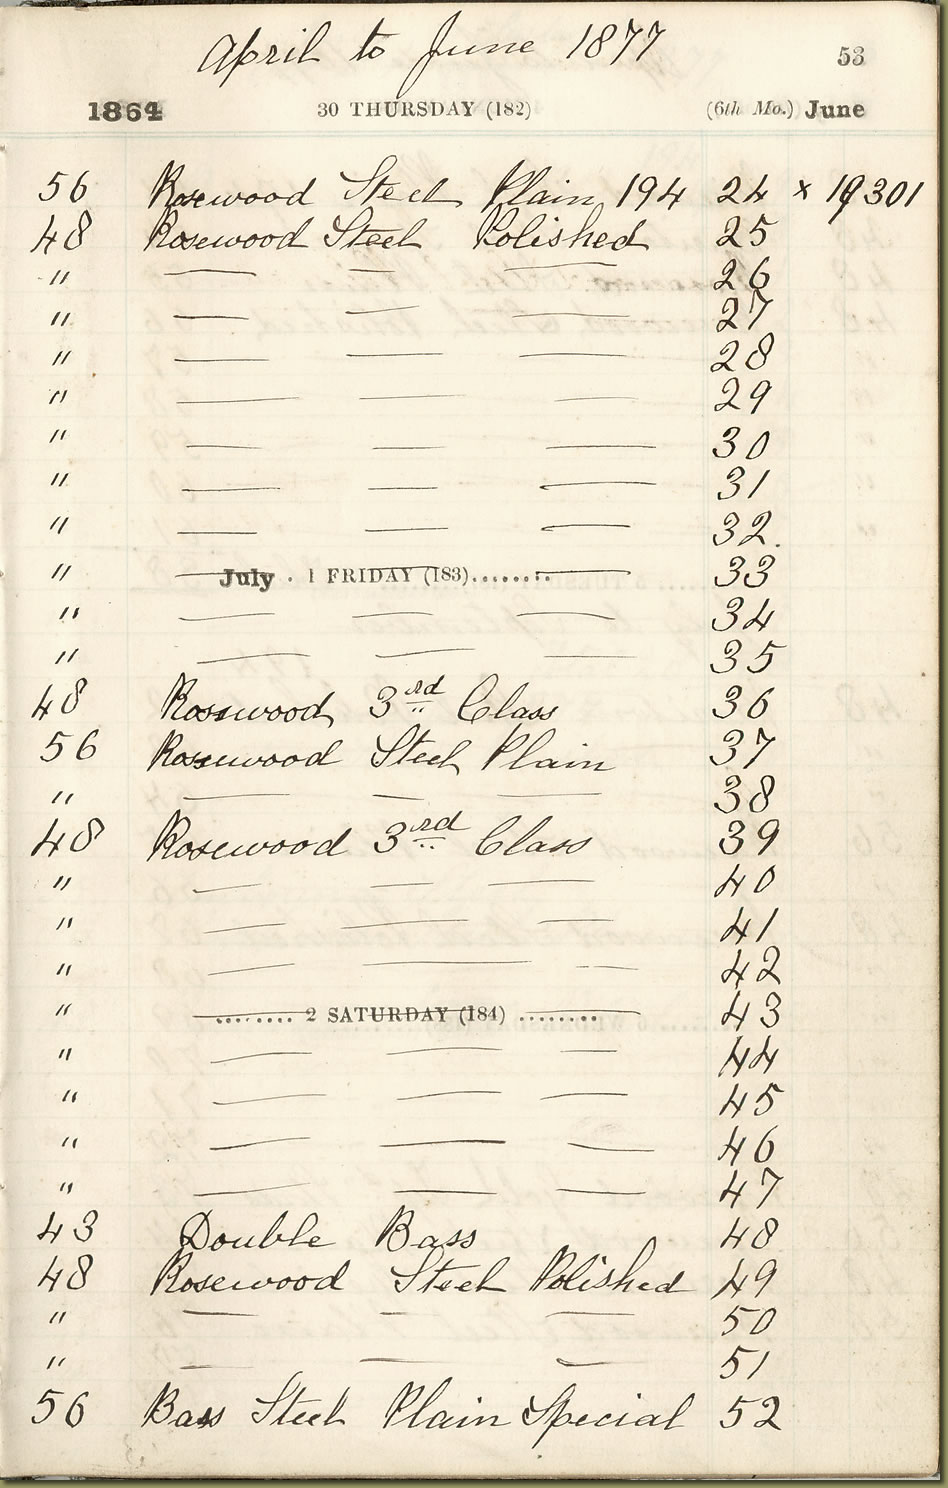 April to June 1877
53
1864 30 THURSDAY (182) (6th Mo.) June
56 Rosewood Steel Plain 194 24 × 19301
48 Rosewood Steel Polished 25
" — — — 26
" — — — 27
" — — — 28
" — — — 29
" — — — 30
" — — — 31
" — — — 32.
" July . 1 FRIDAY (183)........ 33
" — — — 34
" — — — 35
48 Rosewood 3rd Class 36
56 Rosewood Steel Plain 37
" — — — 38
48 Rosewood 3rd Class 39
" — — — 40
" — — — 41
" — — — 42
" ........ 2 SATURDAY (184) ........ 43
" — — — 44
" — — — 45
" — — — 46
" — — — 47
43 Double Bass 48
48 Rosewood Steel Polished 49
" — — — 50
" — — — 51
56 Bass Steel Plain Special 52